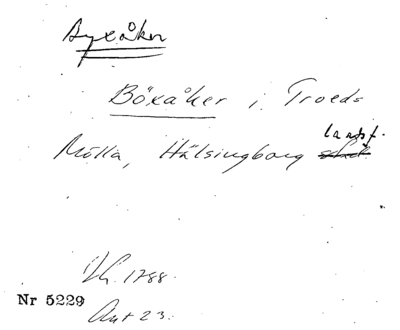 Byxåker
Böxaåker i Troeds
Mölla, Hälsingborg landsf.
Vh. 1788.
Nr 5229
Akt 23.